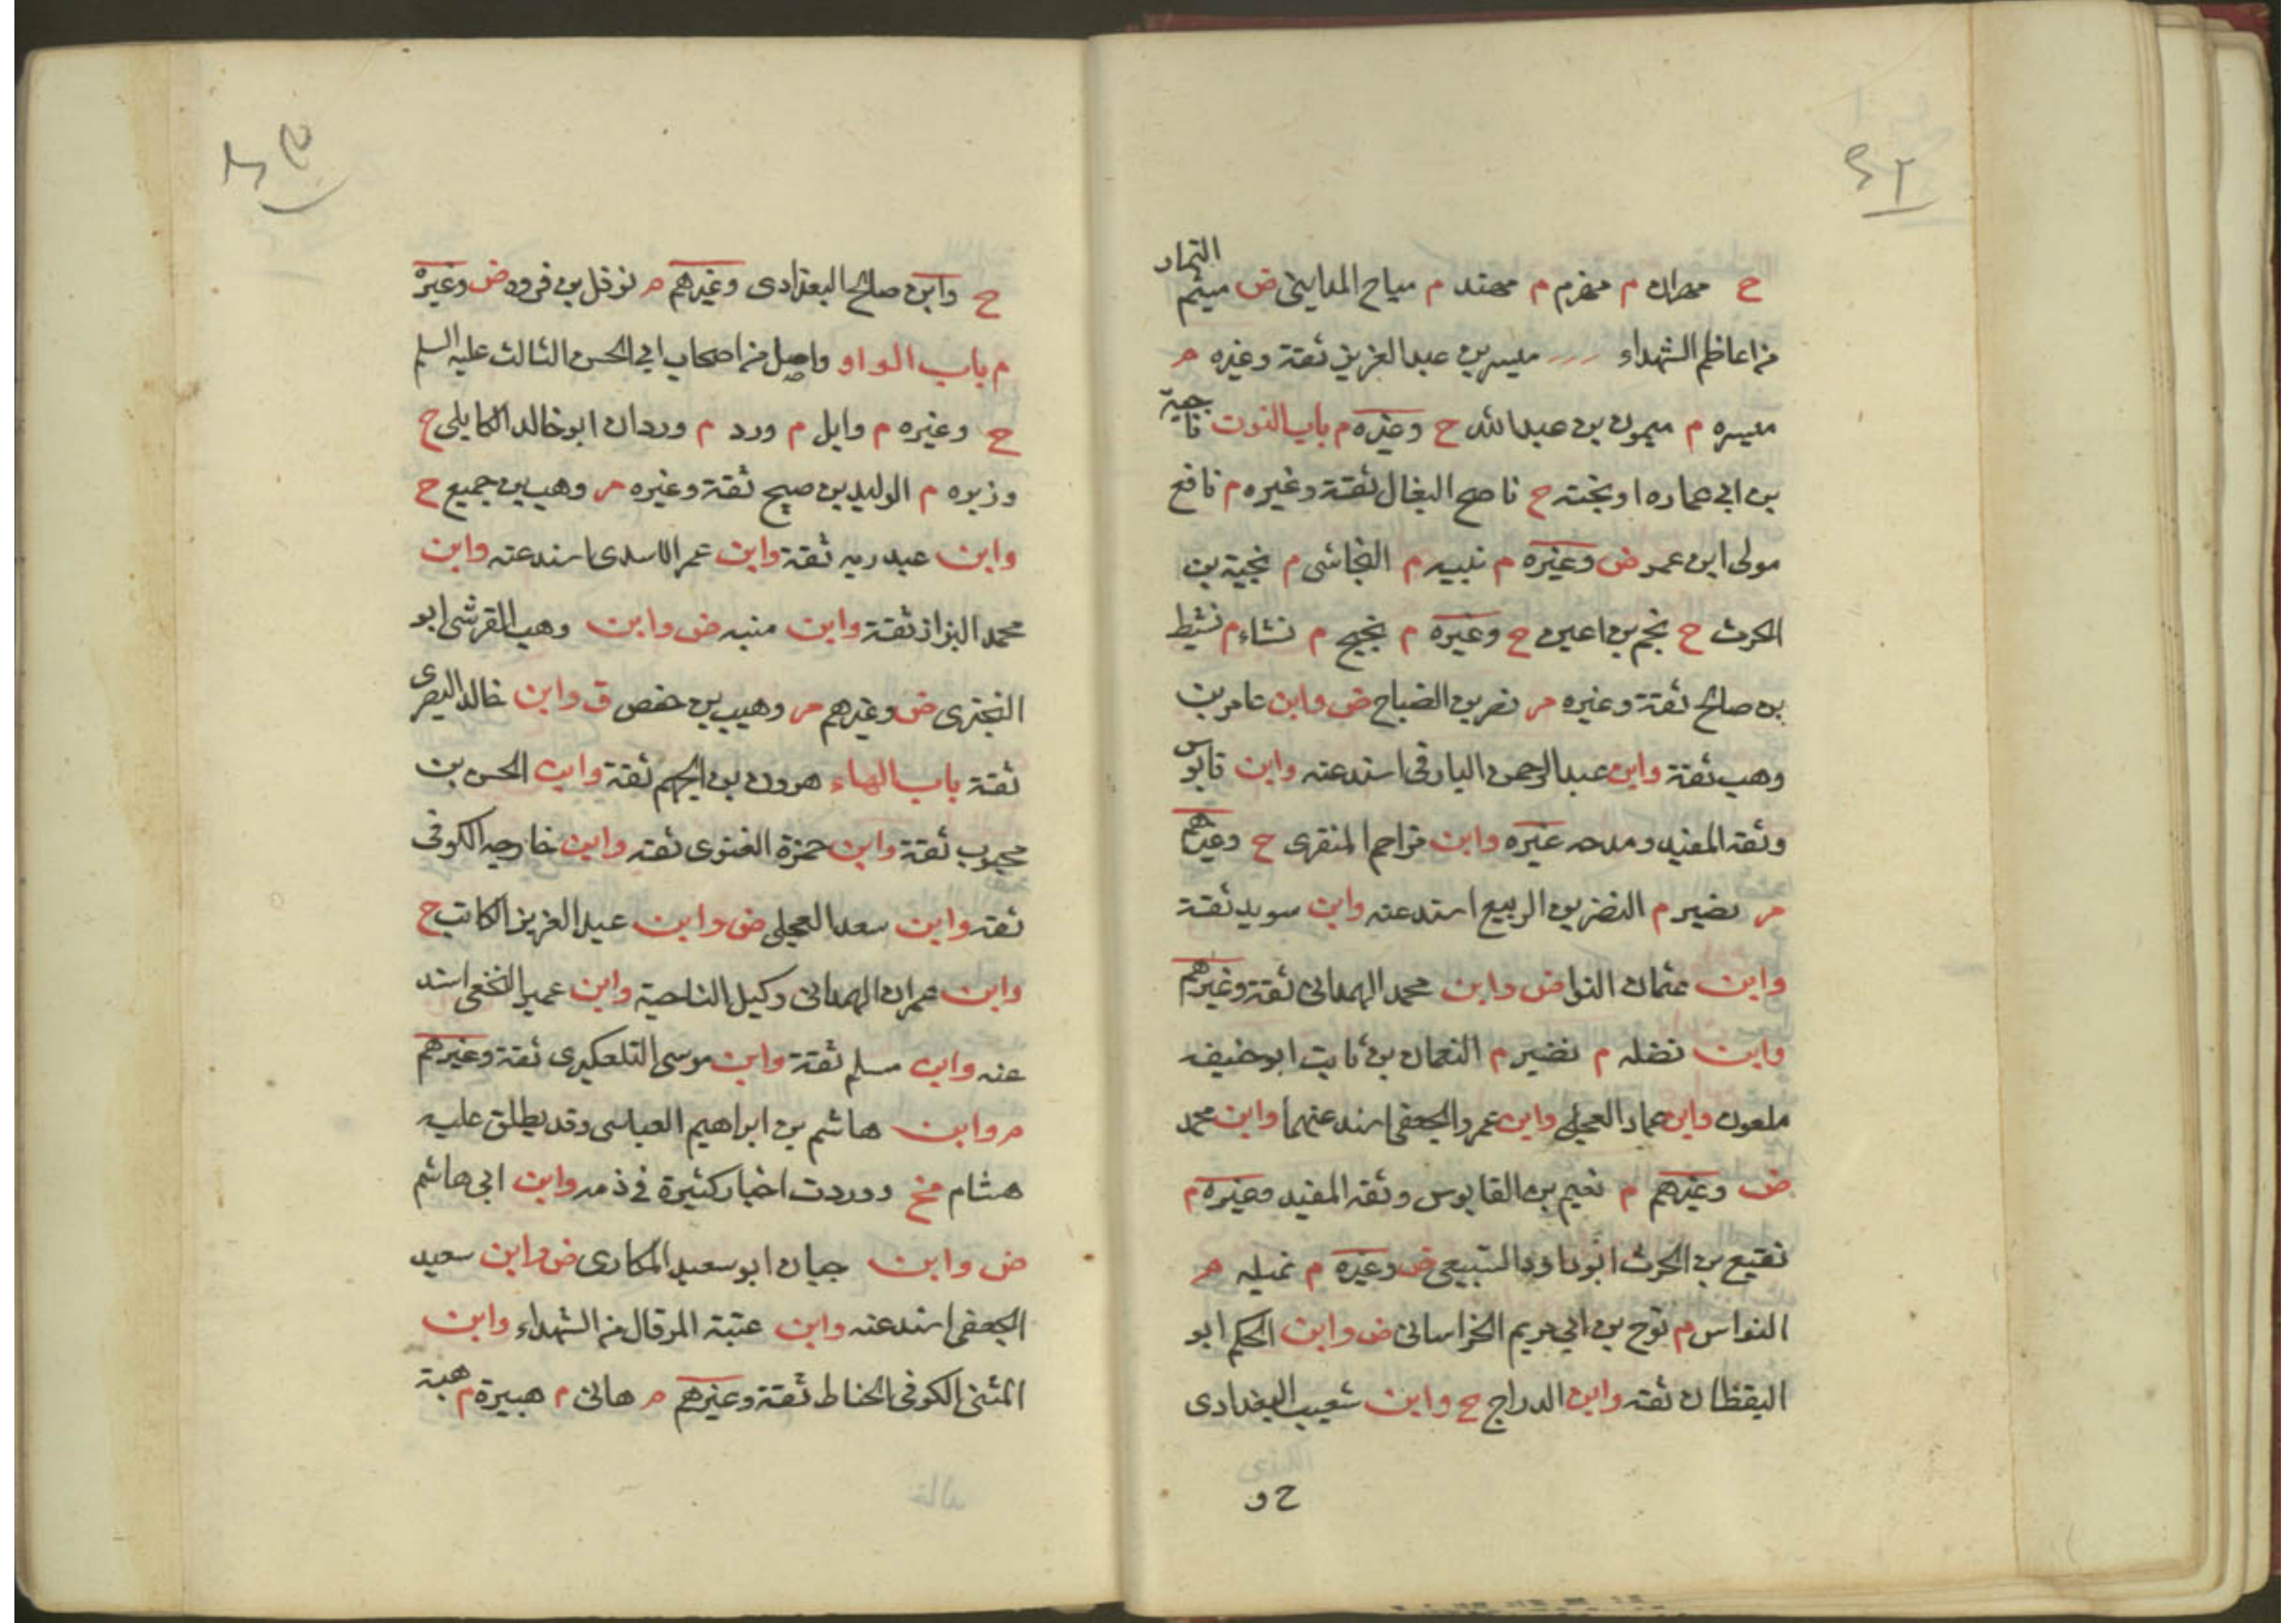 ح مهران م مهزم م مهند م مياح المدايني ض ميثم التمار
من اعاظم الشهداء ميسر بن عبد العزيز ثقة وغيره م
ميسره م ميمون بن عبد الله ح وغيره م باب النون ناجية
بن ابي عماره او بخته ح ناصح البغال ثقة وغيره م نافع
مولى ابن عمر ض وغيره م نبيه م النجاشى م نجية بن
الحرث ح نجم بن اعين ح وغيره م نجيح م نشاء م نشيط
بن صالح ثقة وغيره م نصر بن الصباح ض وابن عامر بن
وهب ثقة وابن عبد الرحمن البارقى اسند عنه وابن قابوس
وثقه المفيد ومدحه غيره وابن مزاحم المنقرى ح وغيرهم
م نضير م النضر بن الربيع اسند عنه وابن سويد ثقة
وابن عثمان النوا ض وابن محمد الهمدانى ثقة وغيرهم
وابن نضله م نضير م النعمان بن ثابت ابو حنيفه
ملعون وابن عمار العجلى وابن عمرو الجعفى اسند عنهما وابن محمد
ض وغيرهم م نعيم بن القابوس وثقه المفيد وغيره م
نقيع بن الحرث ابو داود السبيعى ض وغيره م نميله م
النواس م نوح بن ابي مريم الخراسانى ض وابن الحكم ابو
اليقظان ثقه وابن الدراج ح وابن شعيب البغدادى
ح و
ح وابن صالح البغدادى وغيرهم م نوفل بن فروه ض وغيره
م باب الواو واصل من اصحاب ابي الحسن الثالث عليه السلم
ح وغيره م وايل م ورد م وردان ابو خالد الكابلى ح
وزيره م الوليد بن صبيح ثقة وغيره م وهيب بن جميع ح
وابن عبد ربه ثقة وابن عمر الاسدى اسند عنه وابن
محمد البزاز ثقة وابن منبه ض وابن وهب القرشى ابو
البخترى ض وغيرهم م وهيب بن حفص ق وابن خالد البصرى
ثقة باب الهاء هرون بن الجهم ثقة وابن الحسن بن
محبوب ثقة وابن حمزة الغنوى ثقه وابن خارجه الكوفى
ثقه وابن سعد العجلى ض وابن عبد العزيز الكاتب ح
وابن عمران الهمدانى وكيل الناحية وابن عمير النخعى اسند
عنه وابن مسلم ثقة وابن موسى التلعكبرى ثقة وغيرهم
م وابن هاشم بن ابراهيم العباسى وقد يطلق عليه
هشام مخ ووردت اخبار كثيرة فى ذمه وابن ابى هاشم
ض وابن حيان ابو سعيد المكارى ض وابن سعيد
الجعفى اسند عنه وابن عتبة المرقال من الشهداء وابن
المثنى الكوفى الحناط ثقة وغيرهم م هانى م هبيرة م هبة